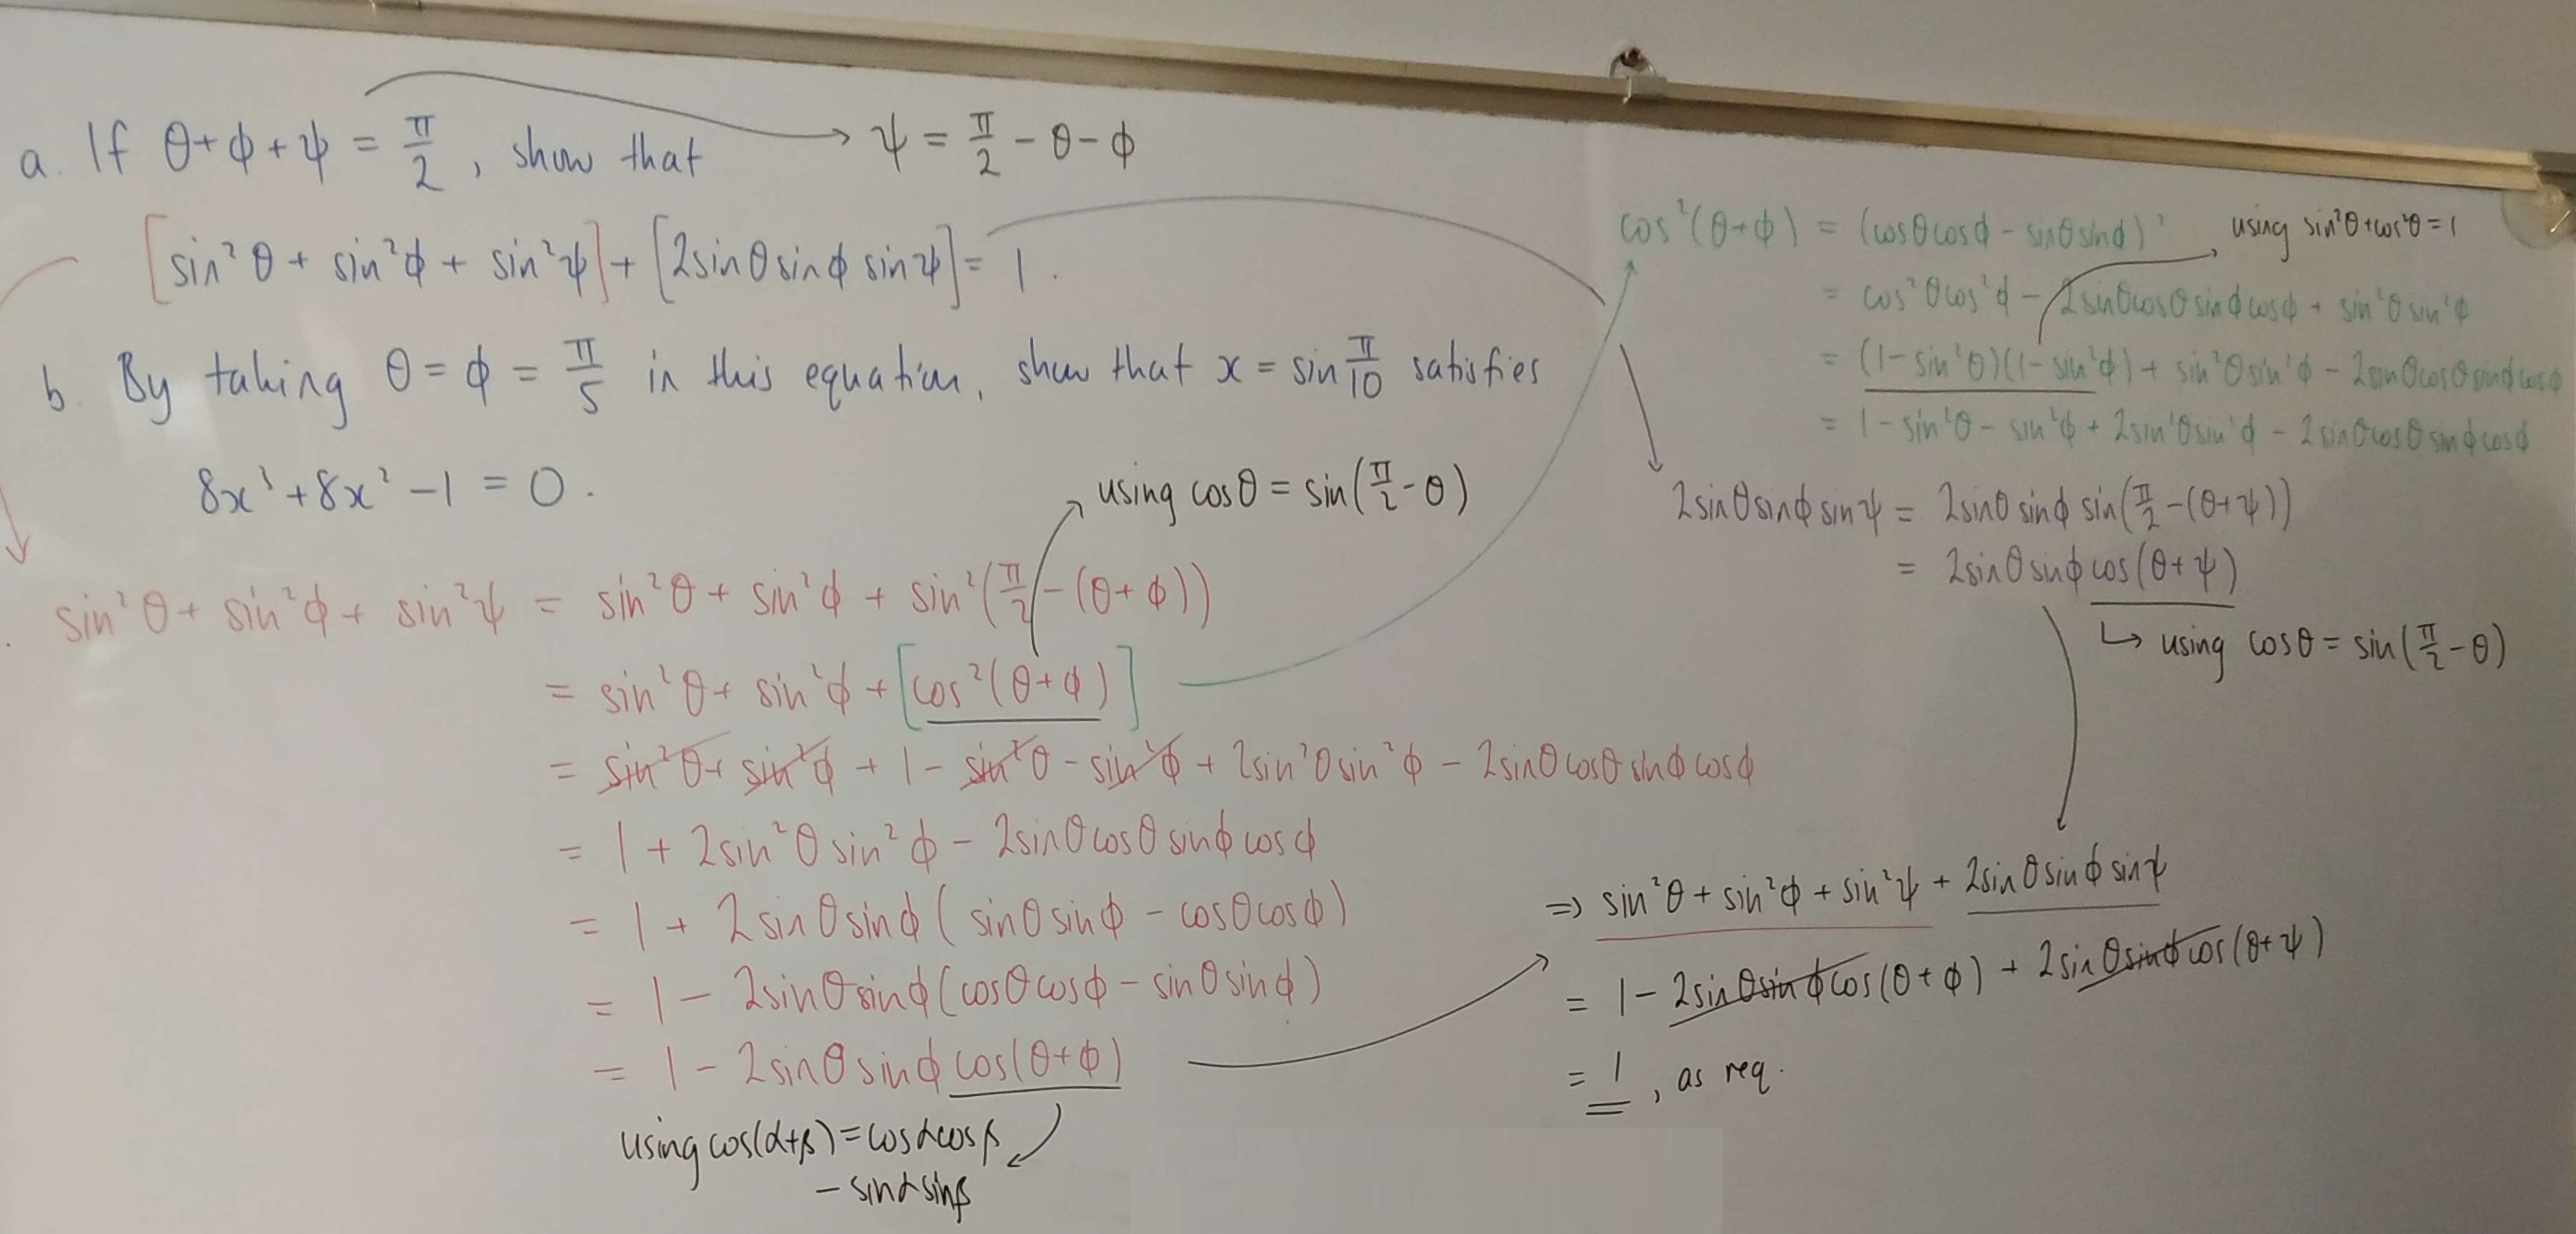 a. If θ+ϕ+ψ = π/2, show that → ψ = π/2 - θ - ϕ
[sin²θ + sin²ϕ + sin²ψ] + [2sinθsinϕ sinψ] = 1.
b. By taking θ = ϕ = π/5 in this equation, show that x = sin π/10 satisfies
8x³ + 8x² - 1 = 0.
sin²θ + sin²ϕ + sin²ψ = sin²θ + sin²ϕ + sin²(π/2 - (θ+ϕ))
= sin²θ + sin²ϕ + [cos²(θ+ϕ)]
using cosθ = sin(π/2 - θ)
= sin²θ + sin²ϕ + 1 - sin²θ - sin²ϕ + 2sin²θsin²ϕ - 2sinθcosθsinϕcosϕ
= 1 + 2sin²θsin²ϕ - 2sinθcosθsinϕcosϕ
= 1 + 2sinθsinϕ(sinθsinϕ - cosθcosϕ)
= 1 - 2sinθsinϕ(cosθcosϕ - sinθsinϕ)
= 1 - 2sinθsinϕcos(θ+ϕ)
using cos(α+β) = cosαcosβ
- sinαsinβ
cos²(θ+ϕ) = (cosθcosϕ - sinθsinϕ)²
using sin²θ+cos²θ = 1
= cos²θcos²ϕ - 2sinθcosθsinϕcosϕ + sin²θsin²ϕ
= (1-sin²θ)(1-sin²ϕ) + sin²θsin²ϕ - 2sinθcosθsinϕcosϕ
= 1 - sin²θ - sin²ϕ + 2sin²θsin²ϕ - 2sinθcosθsinϕcosϕ
2sinθsinϕsinψ = 2sinθsinϕ sin(π/2 - (θ+ψ))
= 2sinθsinϕcos(θ+ψ)
↳ using cosθ = sin(π/2 - θ)
⇒ sin²θ + sin²ϕ + sin²ψ + 2sinθsinϕsinψ
= 1 - 2sinθsinϕcos(θ+ϕ) + 2sinθsinϕcos(θ+ψ)
= 1, as req.